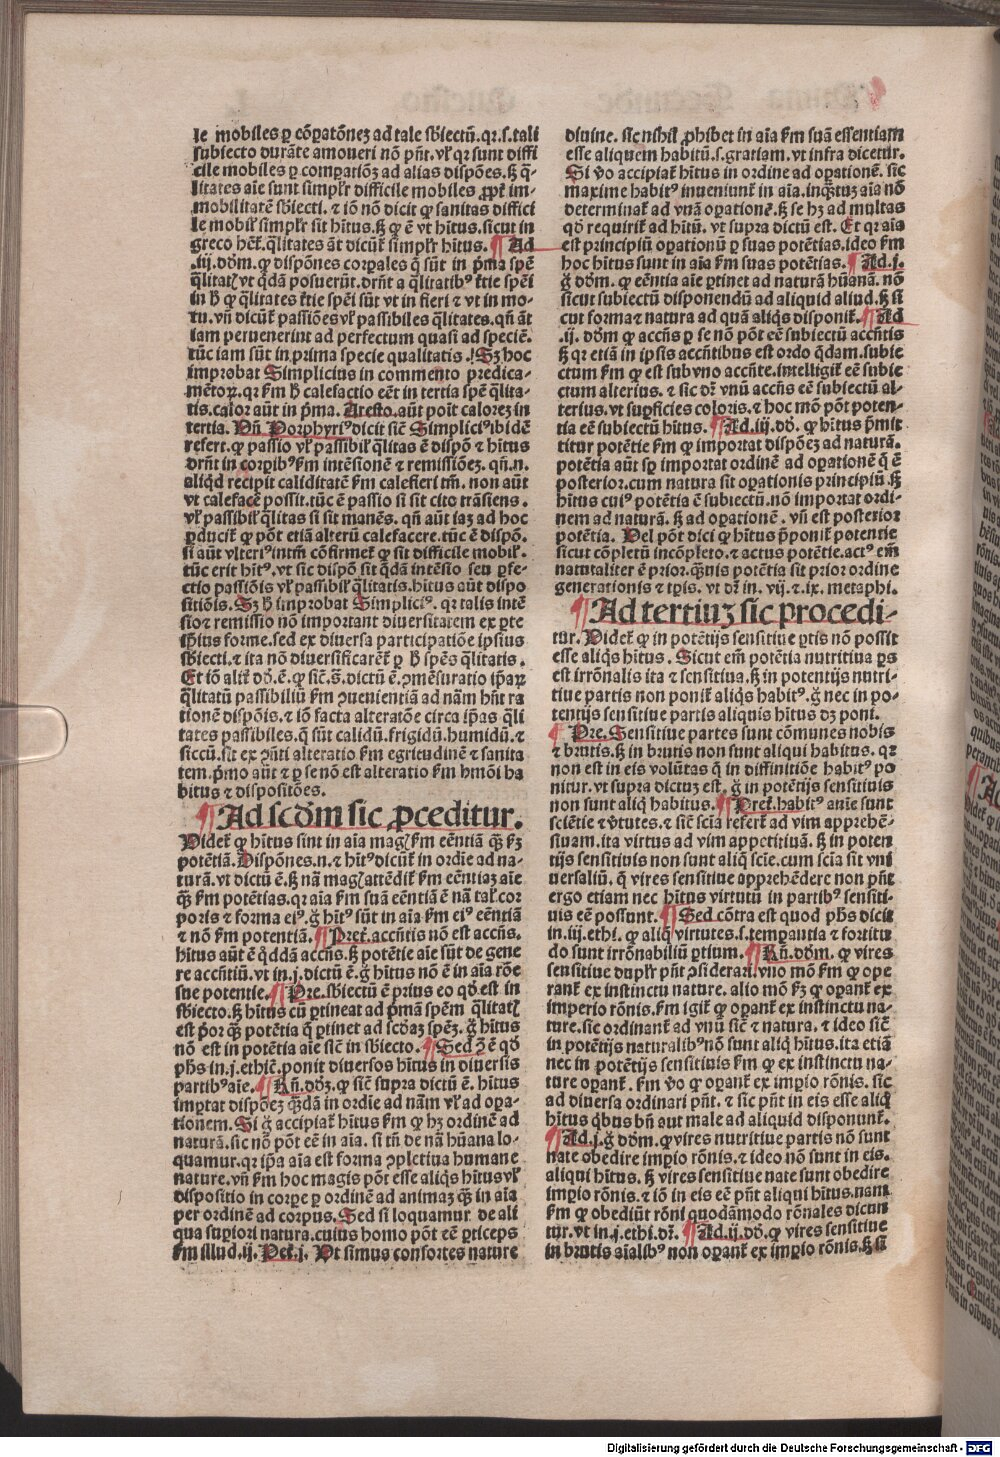 le mobiles ꝑ cōꝑatōnez ad tale sbiectū. qꝛ .s. tali
subiecto durāte amoueri nō pn̄t. vl' qꝛ sunt diffi
cile mobiles ꝑ comꝑatiōꝫ ad alias dispōes. sꝫ q̄-
litates aīe sunt simplr̄ difficile mobiles ꝓpt̄ im-
mobilitatē sbiecti. ⁊ iō nō dicit ꝙ sanitas diffici
le mobil' simplr̄ sit hītus. sꝫ ꝙ ē vt hītus. sicut in
greco hēt̄. q̄litates āt dicūt̄ simplr̄ hītus. ¶ Ad
.iij. dōm. ꝙ dispōnes corꝑales q̄ sūt in pͥma spē
q̄litatꝭ vt q̄dā posuerūt. drn̄t a q̄litatibꝰ t̄tie spēi
in h̄ ꝙ q̄litates t̄tie spēi sūt vt in fieri ⁊ vt in mo-
tu. vn̄ dicūt̄ passiōes vl' passibiles q̄litates. qn̄ āt
iam peruenerint ad perfectum quasi ad speciē.
tūc iam sūt in prima specie qualitatis. Sꝫ hoc
improbat Simplicius in commento predica-
mētoꝝ. qꝛ fm h̄ calefactio eēt in tertia spē q̄lita-
tis. calor aūt in pͥma. Aresto. aūt poīt calorez in
tertia. Vn̄ Porphyriꝰ dicit siē Simpliciꝰ ibidē
refert. ꝙ passio vl' passibil' q̄litas ē dispō ⁊ hītus
drn̄t in corꝑibꝰ fm intēsionē ⁊ remissiōez. qn̄ .n.
aliqd recipit caliditatē fm calefieri tm̄. non aūt
vt calefacē possit. tūc ē passio si sit cito trāsiens.
vl' passibil' q̄litas si sit manēs. qn̄ aūt iaz ad hoc
ꝑducit̄ ꝙ pōt etiā alterū calefacere. tūc ē dispō.
si aūt vlteriꝰ intm̄ cōfirmet̄ ꝙ sit difficile mobil'.
tūc erit hītꝰ. vt sic dispō sit q̄dā intēsio seu ꝑfe-
ctio passiōis vl' passibil' q̄litatis. hitus aūt dispo
sitiōis. Sꝫ h̄ improbat Simpliciꝰ. qꝛ talis intē
sio ⁊ remissio nō important diuersitatem ex ꝑte
ip̄ius forme. sed ex diuersa participatiōe ipsius
sbiecti. ⁊ ita nō diuersificarēt̄ ꝑ h̄ spēs q̄litatis.
Et iō alit̄ dō. ē. ꝙ sic̄. s̄. dictū ē. ꝯmēsuratio ip̄aꝝ
q̄litatū passibiliū fm ꝯuenientiā ad nām hn̄t ra
tionē dispōis. ⁊ iō facta alteratōe circa ip̄as q̄li
tates passibiles. q̄ sūt calidū. frigidū. humidū. ⁊
siccū. sit ex ꝯn̄ti alteratio fm egritudinē ⁊ sanita
tem. pͥmo aūt ⁊ ꝑ se nō est alteratio fm hmōi ha
bitus ⁊ dispositōes.
¶ Ad scd̄m sic ꝓceditur.
Videt̄ ꝙ hītus sint in aīa magꝭ fm eēntiā qꝫ̄ fꝫ
potētiā. Dispōnes .n. ⁊ hītꝰ dicūt̄ in ordīe ad na-
turā. vt dictū ē. sꝫ nā magꝭ attēdit̄ fm eēntiaz aīe
qꝫ̄ fm potētias. qꝛ aīa fm suā eēntiā ē nā tal' cor
poris ⁊ forma eiꝰ. g̊ hītꝰ sūt in aīa fm eiꝰ eēntiā
⁊ nō fm potentiā. ¶ Pret̄. accn̄tis nō est accn̄s.
hītus aūt ē q̄ddā accn̄s. sꝫ potētie aīe sūt de gene
re accn̄tiū. vt in .j. dictū ē. g̊ hītus nō ē in aīa rōe
sue potentie. ¶ Pre. sbiectū ē prius eo qd̄ est in
sbiecto. sꝫ hītus cū ꝑtineat ad pͥmā spēm q̄litatꝭ
est pͥor qꝫ̄ potētia q̄ ꝑtinet ad scd̄az spēꝫ. g̊ hītus
nō est in potētia aīe siē in sbiecto. ¶ Sed ꝯ ē qd̄
ph̄s in .j. ethic̄. ponit diuersos hītus in diuersis
partibꝰ aīe. ¶ Rn̄. dōꝫ. ꝙ siē supra dictū ē. hītus
imꝑtat dispōez qꝫ̄dā in ordīe ad nām vl' ad oꝑa-
tionem. Si g̊ accipiat̄ hītus fm ꝙ hꝫ ordinē ad
naturā. sic nō pōt eē in aīa. si tn̄ de nā hūana lo-
quamur. qꝛ ip̄a aīa est forma ꝯpletiua humane
nature. vn̄ fm hoc magis pōt esse aliqs hītus vl'
dispositio in corꝑe ꝑ ordinē ad animaz qꝫ̄ in aīa
per ordinē ad corpus. Sed si loquamur de ali
qua supiori natura. cuius homo pōt eē ꝑticeps
fm illud .ij. Pet̄. j. Vt simus consortes nature
diuine. sic nihil ꝓhibet in aīa fm suā essentiam
esse aliquem habitū. s. gratiam. vt infra dicetur.
Si v̊o accipiat̄ hītus in ordine ad oꝑationē. sic
maxime habitꝰ inueniunt̄ in aīa. inqꝫ̄tuꝫ aīa nō
determinat̄ ad vnā oꝑationē. sꝫ se hꝫ ad multas
qd̄ requirit̄ ad hītū. vt supra dictū est. Et qꝛ aīa
est principiū oꝑationū ꝑ suas potētias. ideo fm
hoc hītus sunt in aīa fm suas potētias. ¶ Ad .j.
g̊ dōm. ꝙ eēntia aīe ꝑtinet ad naturā hūanā. nō
sicut subiectū disponendū ad aliquid aliud. sꝫ si
cut forma ⁊ natura ad quā aliqs disponit̄. ¶ Ad
.ij. dōm ꝙ accn̄s ꝑ se nō pōt eē subiectū accn̄tis
sꝫ qꝛ etiā in ipsis accn̄tibus est ordo q̄dam. subie
ctum fm ꝙ est sub vno accn̄te. intelligit̄ eē subie
ctum alterius. ⁊ sic dr̄ vnū accn̄s eē subiectū al-
terius. vt suꝑficies coloris. ⁊ hoc mō pōt poten-
tia eē subiectū hītus. ¶ Ad .iij. dō. ꝙ hītus p̄mit
titur potētie fm ꝙ importat dispōeꝫ ad naturā.
potētia aūt sꝑ importat ordinē ad oꝑationē q̄ ē
posterior. cum natura sit oꝑationis principiū. sꝫ
hītus cuiꝰ potētia ē subiectū. nō importat ordi-
nem ad naturā. sꝫ ad oꝑationē. vn̄ est posterior
potētia. Vel pōt dici ꝙ hītus p̄ponit̄ potentie
sicut cōpletū incōpleto. ⁊ actus potētie. actꝰ em̄
naturaliter ē prior. qꝫ̄uis potētia sit prior ordine
generationis ⁊ tꝑis. vt dr̄ in .vij. ⁊ .ix. metaphi.
¶ Ad tertiuꝫ sic procedi-
tur. Videt̄ ꝙ in potētijs sensitiue ꝑtis nō possit
esse aliqs hītus. Sicut em̄ potētia nutritiua ꝑs
est irrōnalis ita ⁊ sensitiua. sꝫ in potentijs nutri-
tiue partis non ponit̄ aliqs habitꝰ. g̊ nec in po-
tentijs sensitiue partis aliquis hītus dꝫ poni.
¶ Pre. Sensitiue partes sunt cōmunes nobis
⁊ brutis. sꝫ in brutis non sunt aliqui habitus. qꝛ
non est in eis volūtas q̄ in diffinitiōe habitꝰ po
nitur. vt supra dictuꝫ est. g̊ in potētijs sensitiuis
non sunt aliq̄ habitus. ¶ Pret̄. habitꝰ anīe sunt
sciētie ⁊ v̊tutes. ⁊ siē scīa refert̄ ad vim apprehē-
siuam. ita virtus ad vim appetitiuā. sꝫ in poten
tijs sensitiuis non sunt aliq̄ scīe. cum scīa sit vni
uersaliū. q̄ vires sensitiue apprehēdere non pn̄t
ergo etiam nec hītus virtutū in partibꝰ sensiti-
uis eē possunt. ¶ Sed cōtra est quod ph̄s dicit
in .iij. ethi. ꝙ aliq̄ virtutes. s. temꝑantia ⁊ fortitu
do sunt irrōnabiliū ꝑtium. ¶ Rn̄. dōm. ꝙ vires
sensitiue duplr̄ pn̄t ꝯsiderari. vno mō fm ꝙ oꝑe
rant̄ ex instinctu nature. alio mō fꝫ ꝙ oꝑant̄ ex
imperio rōnis. fm igit̄ ꝙ oꝑant̄ ex instinctu na-
ture. sic ordinant̄ ad vnū siē ⁊ natura. ⁊ ideo siē
in potētijs naturalibꝰ nō sunt aliq̄ hītus. ita etiā
nec in potētijs sensitiuis fm ꝙ ex instinctu na-
ture oꝑant̄. fm v̊o ꝙ oꝑant̄ ex imꝑio rōnis. sic
ad diuersa ordinari pn̄t. ⁊ sic pn̄t in eis esse aliq̄
hītus q̄bus bn̄ aut male ad aliquid disponunt̄.
¶ Ad .j. g̊ dōm. ꝙ vires nutritiue partis nō sunt
nate obedire imꝑio rōnis. ⁊ ideo nō sunt in eis.
aliqui hītus. sꝫ vires sensitiue nate sunt obedire
imꝑio rōnis. ⁊ iō in eis eē pn̄t aliqui hītus. nam
fm ꝙ obediūt rōni quodāmodo rōnales dicun
tur. vt in .j. ethi. dr̄. ¶ Ad .ij. dō. ꝙ vires sensitiue
in brutis aīalibꝰ non oꝑant̄ ex imꝑio rōnis. sꝫ si
Digitalisierung gefördert durch die Deutsche Forschungsgemeinschaft - DFG